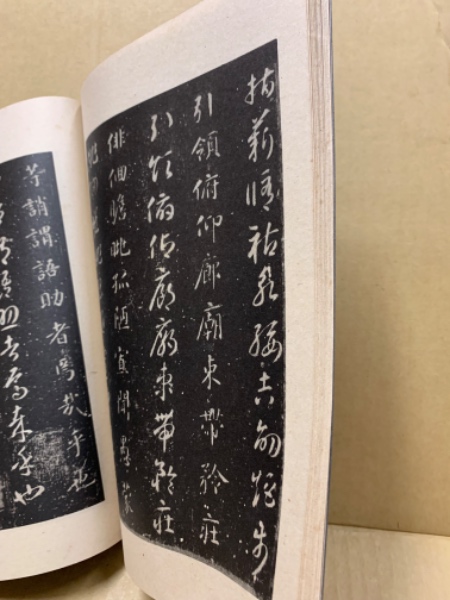 指薪脩祜永綏吉劭矩步
引領俯仰廊廟束帶矜莊
引領俯仰廊廟束帶矜莊
俳佪瞻眺孤陋寡聞愚蒙
等誚謂語助者焉哉乎也
語助者焉哉乎也